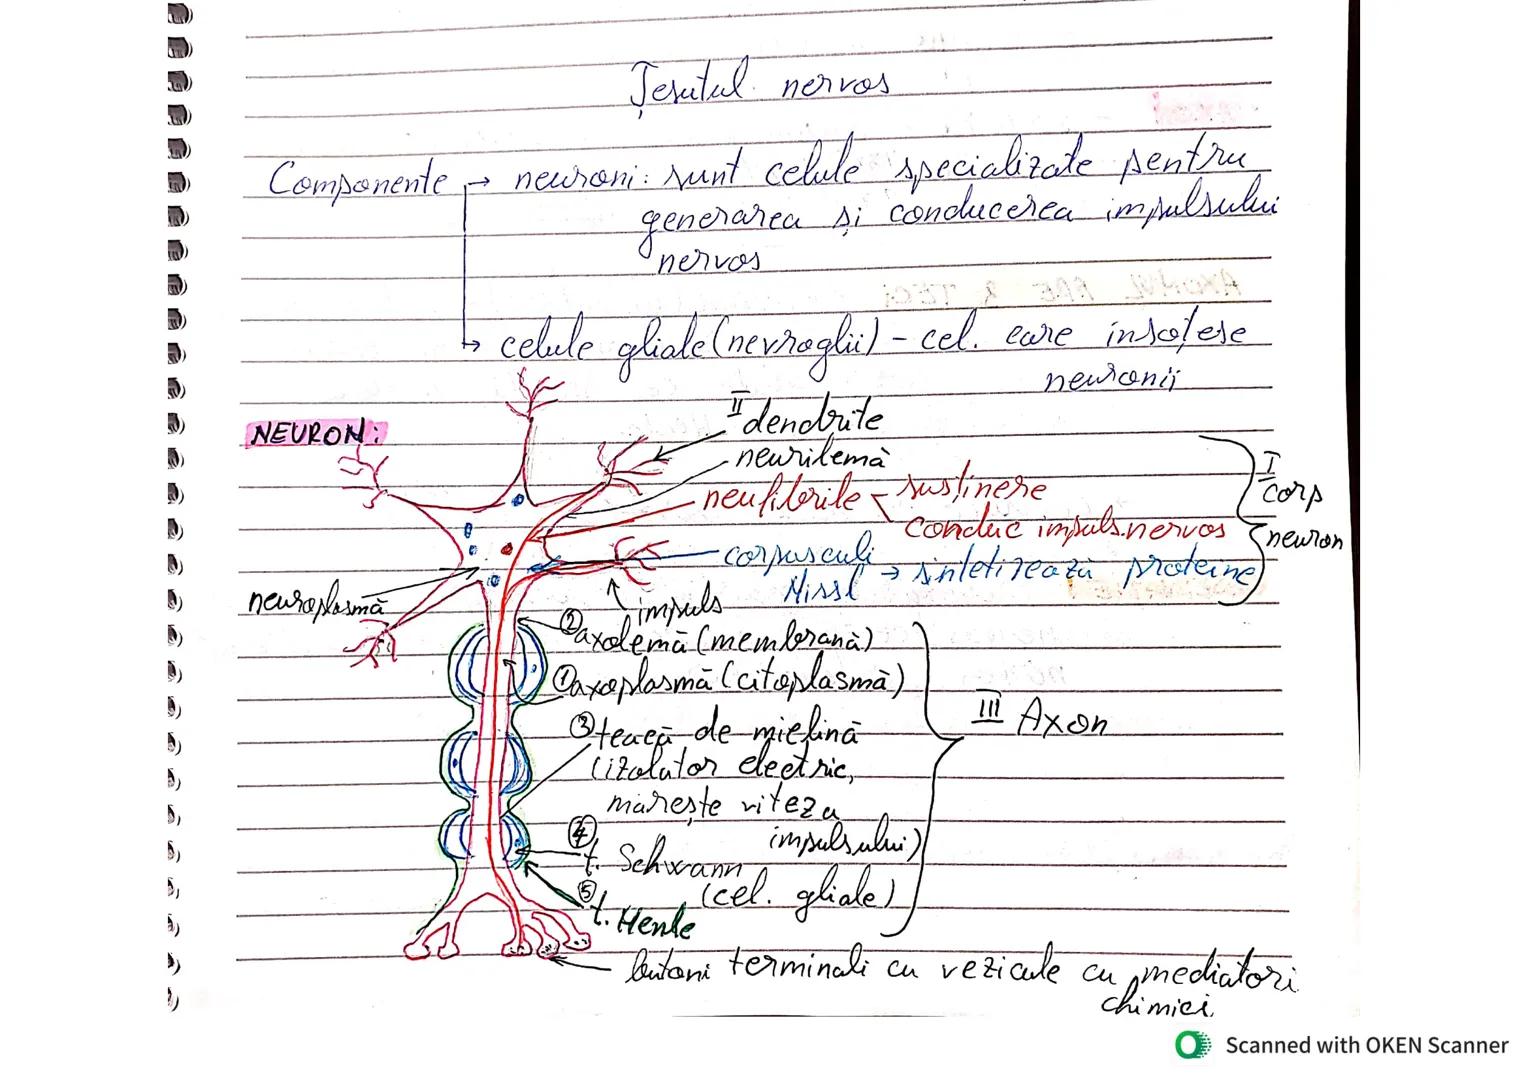 Țesutul nervos
Componente → neuroni: sunt celule specializate pentru
generarea și conducerea impulsului
nervos
→ celule gliale (nevroglii) - cel. care însoțesc
neuronii
NEURON:
II dendrite
neurilemă
neufibrile susținere
conduc impuls. nervos
corpusculi
Nissl → sintetizează proteine
I
corp
neuron
neuroplasmă
impuls
② axolemă (membrană)
① axoplasmă (citoplasmă)
③ teacă de mielină
(izolator electric,
mărește viteza
impulsului)
④ t. Schwann
(cel. gliale)
⑤ t. Henle
III Axon
butoni terminali cu vezicule cu mediatori
chimici.
Scanned with OKEN Scanner